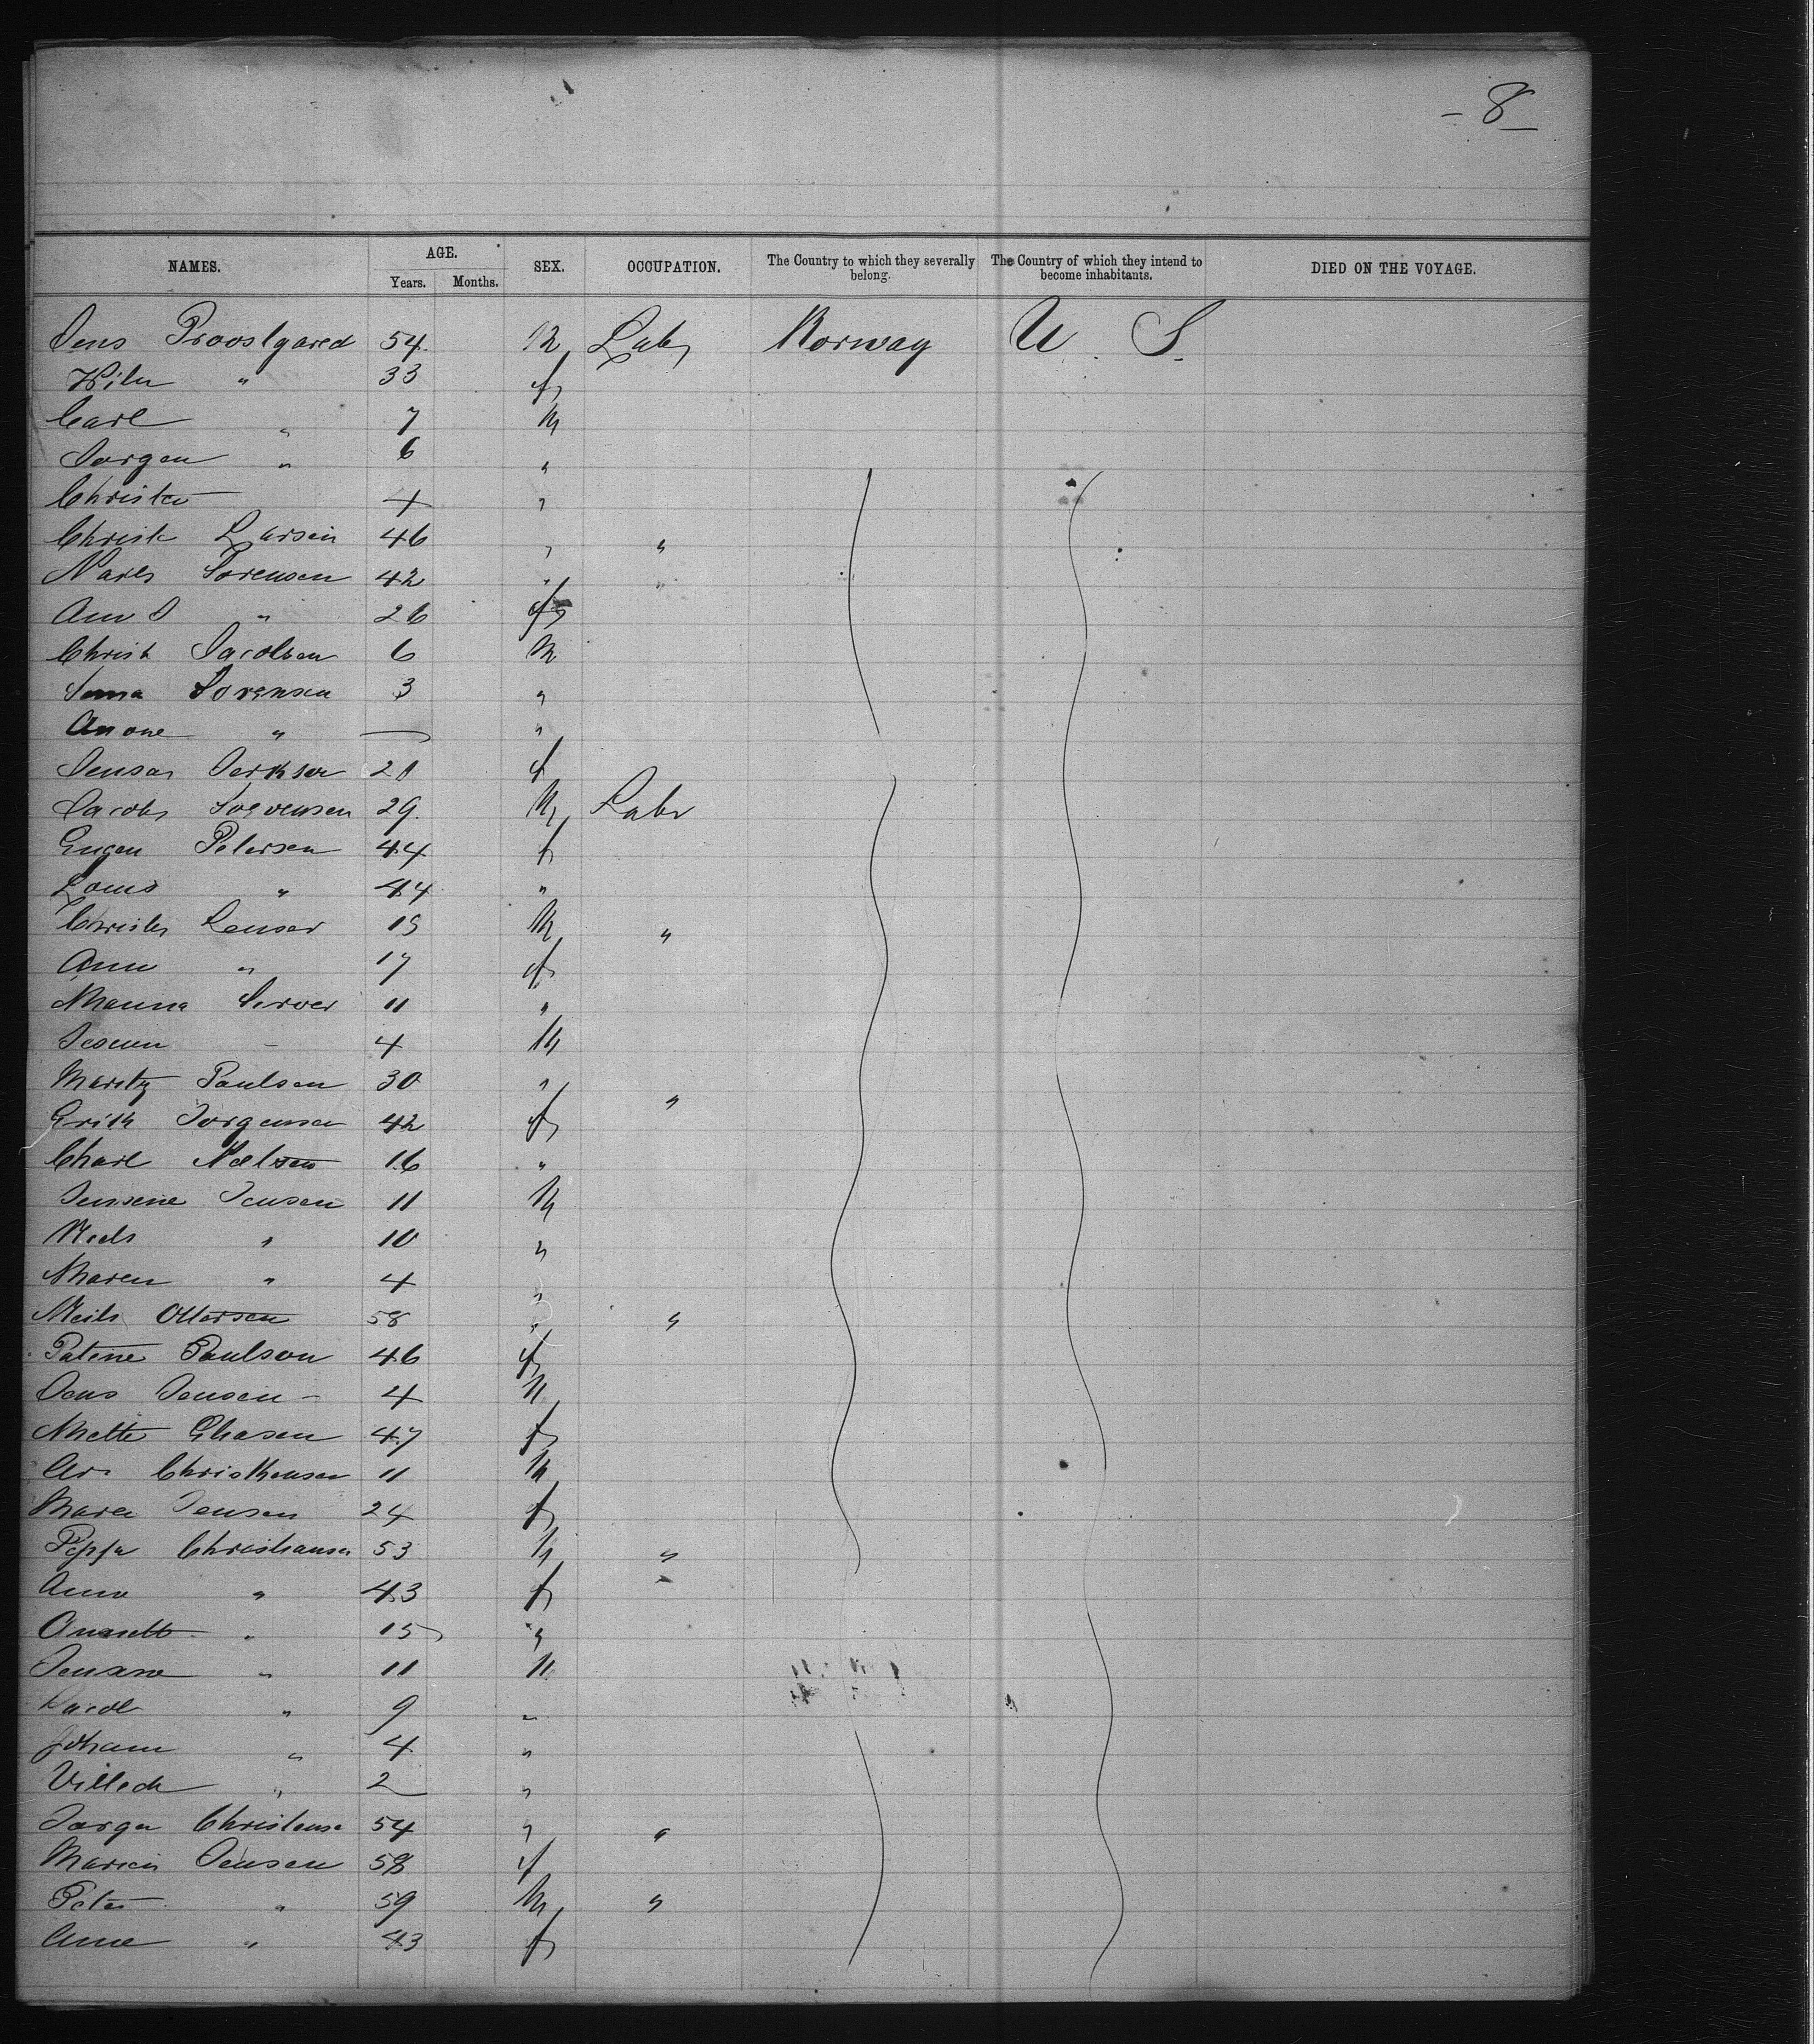 - 8 -
NAMES. AGE. Years. Months. SEX. OCCUPATION. The Country to which they severally belong. The Country of which they intend to become inhabitants. DIED ON THE VOYAGE.
Jens Proostgared 54 M Labr Norway U. S.
" 33 f
Carl " 7 M
Jorgen " 6 "
Christer 4 "
Christ Larsen 46 " "
Sorensen 42 " "
Ann J " 26 f
Christ Jacobsen 6 M
Sorensen 3 "
Anone " — "
21 f
Jacobs Sorensen 29 M Labr
Eugen Petersen 44 f
Louis " 44 "
M "
Ann " 17 f
Server 11 "
4 M
Maritz Paulsen 30 " "
Erik Jorgensen 42 f
Charl Nelsen 16 "
Jensine Jensen 11 M
Niels " 10 "
Maren " 4 "
Neils Ottersen 58 " "
Patene Paulson 46 f
Jens Jensen 4 M
Mette 47 f
Christhensen 11 M
Maren Jensen 24 f
Christiansen 53 M "
Anna " 43 f
" 15 "
" 11 M
Jacob " 9 "
Johann " 4 "
" 2 "
Jorgen Christense 54 " "
Jensen 58 f
Peter " 59 M "
Anne " 43 f